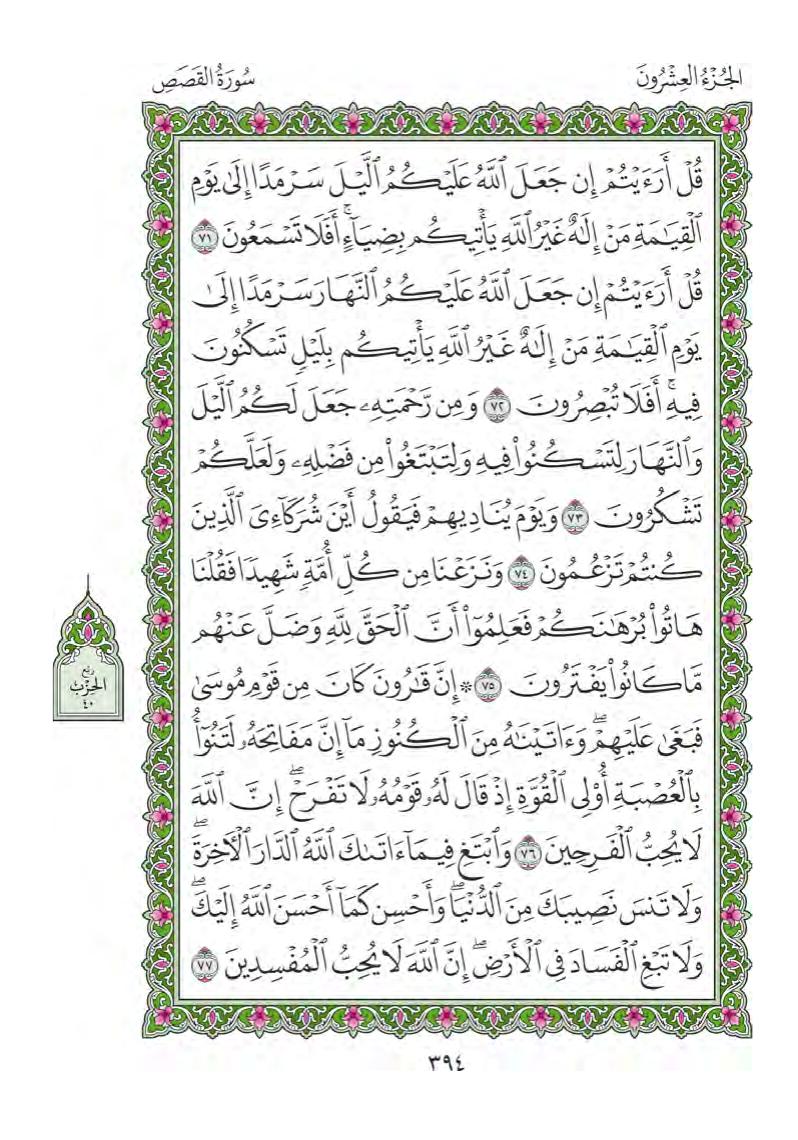 سُورَةُ القَصَصِ
الجُزْءُ العِشْرُونَ
قُلْ أَرَءَيْتُمْ إِن جَعَلَ ٱللَّهُ عَلَيْكُمُ ٱلَّيْلَ سَرْمَدًا إِلَىٰ يَوْمِ
ٱلْقِيَٰمَةِ مَنْ إِلَٰهٌ غَيْرُ ٱللَّهِ يَأْتِيكُم بِضِيَآءٍۚ أَفَلَا تَسْمَعُونَ ٧١
قُلْ أَرَءَيْتُمْ إِن جَعَلَ ٱللَّهُ عَلَيْكُمُ ٱلنَّهَارَ سَرْمَدًا إِلَىٰ
يَوْمِ ٱلْقِيَٰمَةِ مَنْ إِلَٰهٌ غَيْرُ ٱللَّهِ يَأْتِيكُم بِلَيْلٍ تَسْكُنُونَ
فِيهِۚ أَفَلَا تُبْصِرُونَ ٧٢ وَمِن رَّحْمَتِهِۦ جَعَلَ لَكُمُ ٱلَّيْلَ
وَٱلنَّهَارَ لِتَسْكُنُوا۟ فِيهِ وَلِتَبْتَغُوا۟ مِن فَضْلِهِۦ وَلَعَلَّكُمْ
تَشْكُرُونَ ٧٣ وَيَوْمَ يُنَادِيهِمْ فَيَقُولُ أَيْنَ شُرَكَآءِىَ ٱلَّذِينَ
كُنتُمْ تَزْعُمُونَ ٧٤ وَنَزَعْنَا مِن كُلِّ أُمَّةٍ شَهِيدًا فَقُلْنَا
هَاتُوا۟ بُرْهَٰنَكُمْ فَعَلِمُوٓا۟ أَنَّ ٱلْحَقَّ لِلَّهِ وَضَلَّ عَنْهُم
مَّا كَانُوا۟ يَفْتَرُونَ ٧٥ ۞ إِنَّ قَٰرُونَ كَانَ مِن قَوْمِ مُوسَىٰ
فَبَغَىٰ عَلَيْهِمْۖ وَءَاتَيْنَٰهُ مِنَ ٱلْكُنُوزِ مَآ إِنَّ مَفَاتِحَهُۥ لَتَنُوٓأُ
بِٱلْعُصْبَةِ أُو۟لِى ٱلْقُوَّةِ إِذْ قَالَ لَهُۥ قَوْمُهُۥ لَا تَفْرَحْۖ إِنَّ ٱللَّهَ
لَا يُحِبُّ ٱلْفَرِحِينَ ٧٦ وَٱبْتَغِ فِيمَآ ءَاتَىٰكَ ٱللَّهُ ٱلدَّارَ ٱلْـَٔاخِرَةَۖ
وَلَا تَنسَ نَصِيبَكَ مِنَ ٱلدُّنْيَاۖ وَأَحْسِن كَمَآ أَحْسَنَ ٱللَّهُ إِلَيْكَۖ
وَلَا تَبْغِ ٱلْفَسَادَ فِى ٱلْأَرْضِۖ إِنَّ ٱللَّهَ لَا يُحِبُّ ٱلْمُفْسِدِينَ ٧٧
ربع
الحِزْب
٤٠
٣٩٤